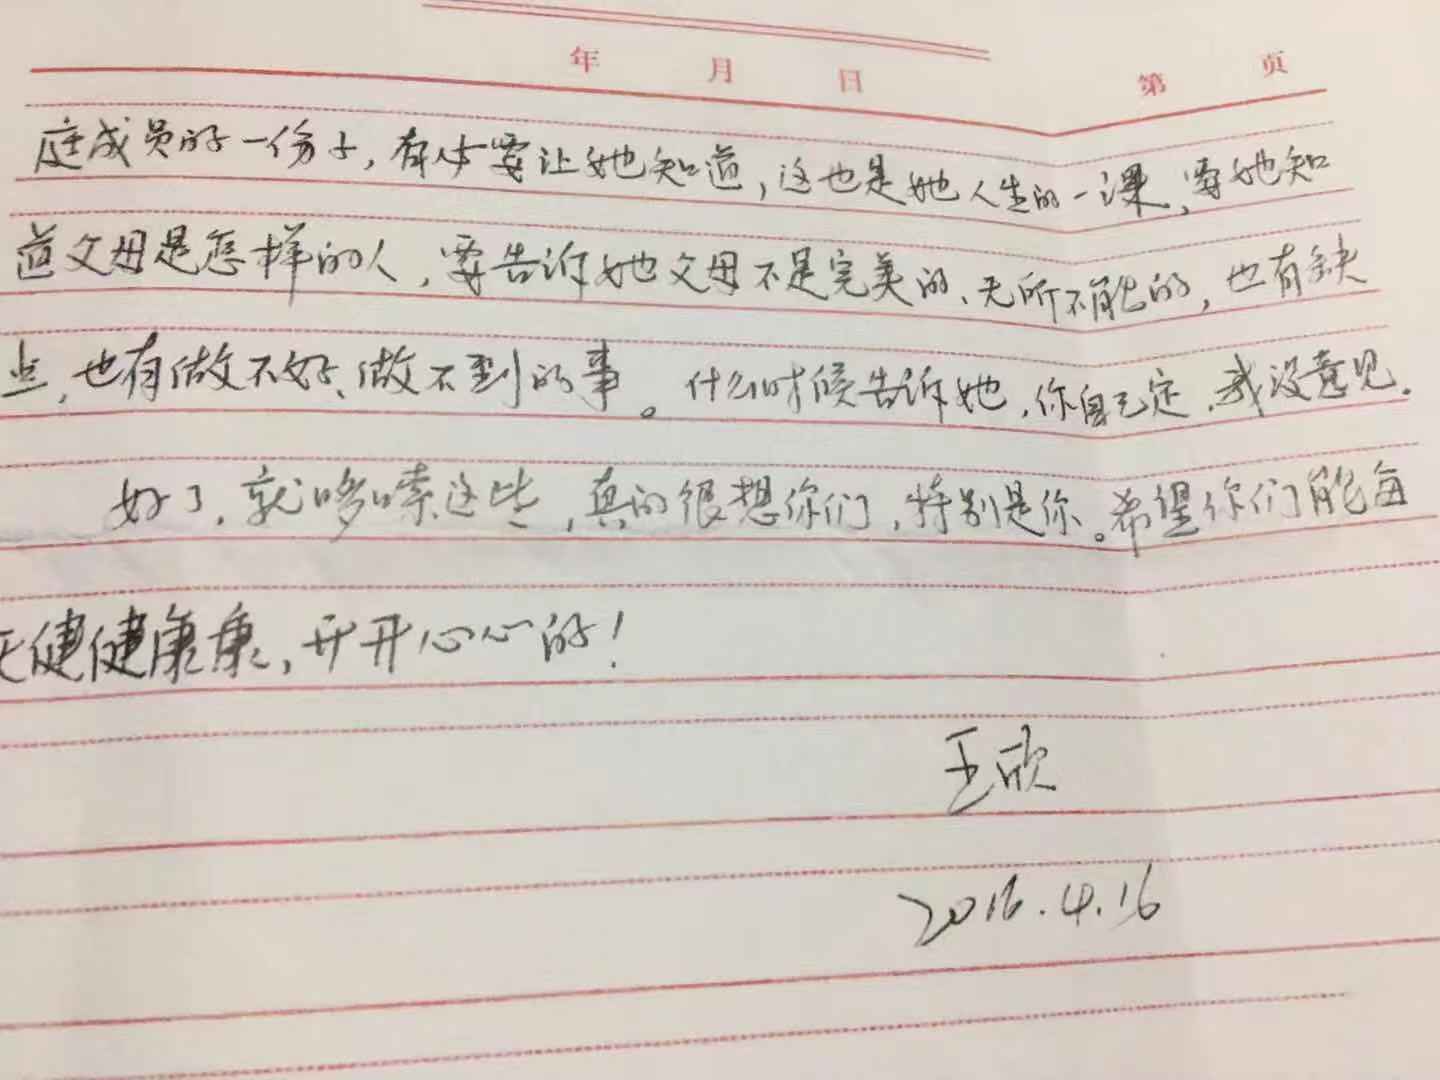 年 月 日 第 页
庭成员的一份子，有必要让她知道，这也是她人生的一课，要她知
道父母是怎样的人，要告诉她父母不是完美的、无所不能的，也有缺
点，也有做不好、做不到的事。什么时候告诉她，你自己定，我没意见。
好了，就哆嗦这些，真的很想你们，特别是你。希望你们能每
天健健康康，开开心心的！
王欣
2016.4.16